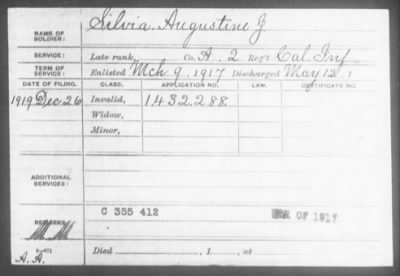 NAME OF SOLDIER: Silvia, Augustine J
SERVICE: Late rank, Co. A, 2 Reg't Cal. Inf
TERM OF SERVICE: Enlisted Mch 9, 1917 Discharged May 12, 1
DATE OF FILING. CLASS. APPLICATION NO. LAW. CERTIFICATE NO.
1919 Dec 26 Invalid, 1.432.288.
Widow,
Minor,
ADDITIONAL SERVICES:
C 355 412 WAR OF 1917
REMARKS:
A.A. Died , 1 , at